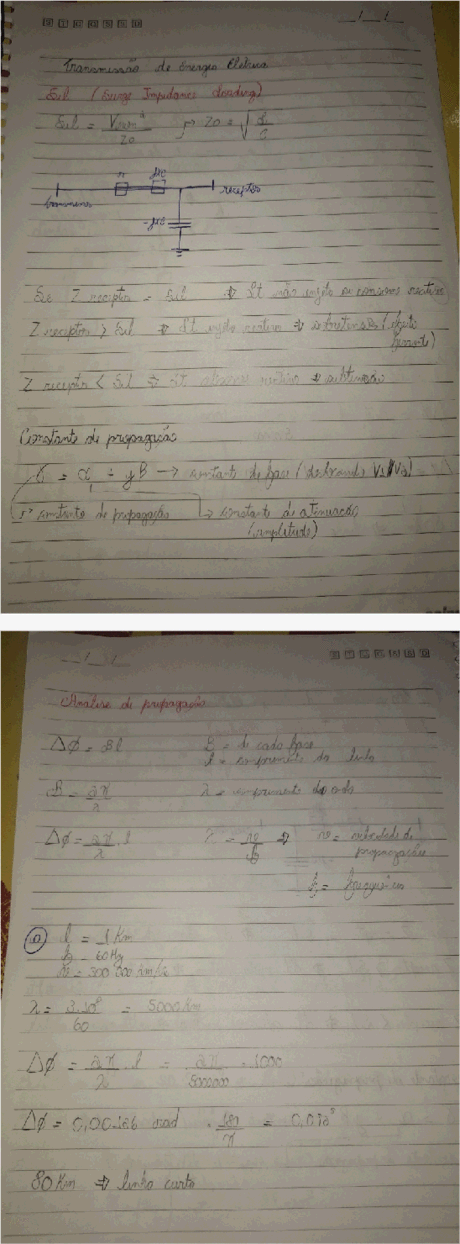 Transmissão de Energia Elétrica
Sil (Surge Impedance loading)
Sil = Vnom² / Z0 → Z0 = √(L/C)
r jxl
transmissor receptor
-jxc
Se Z receptor = Sil ⇒ Lt não injeta ou consome reativo
Z receptor > Sil ⇒ Lt injeta reativo ⇒ sobretensão (efeito
ferrante)
Z receptor < Sil ⇒ Lt reativo ⇒ subtensão
Constante de propagação
= α + yB → constante de fase
→ constante de propagação → constante de atenuação
(amplitude)
Análise de propagação
Δφ = Bl
l = comprimento da linha
B = 2π / λ λ = comprimento de onda
Δφ = 2π / λ . l λ = v / f ⇒ v = velocidade de
propagação
f =
a) l = 1 Km
f = 60Hz
v = 300 000 km/s
λ = 3.10⁸ / 60 = 5000 km
Δφ = 2π / λ . l = 2π / 5000000 . 1000
Δφ = 0,00126 rad . 180 / π = 0,072°
80 Km ⇒ linha curta